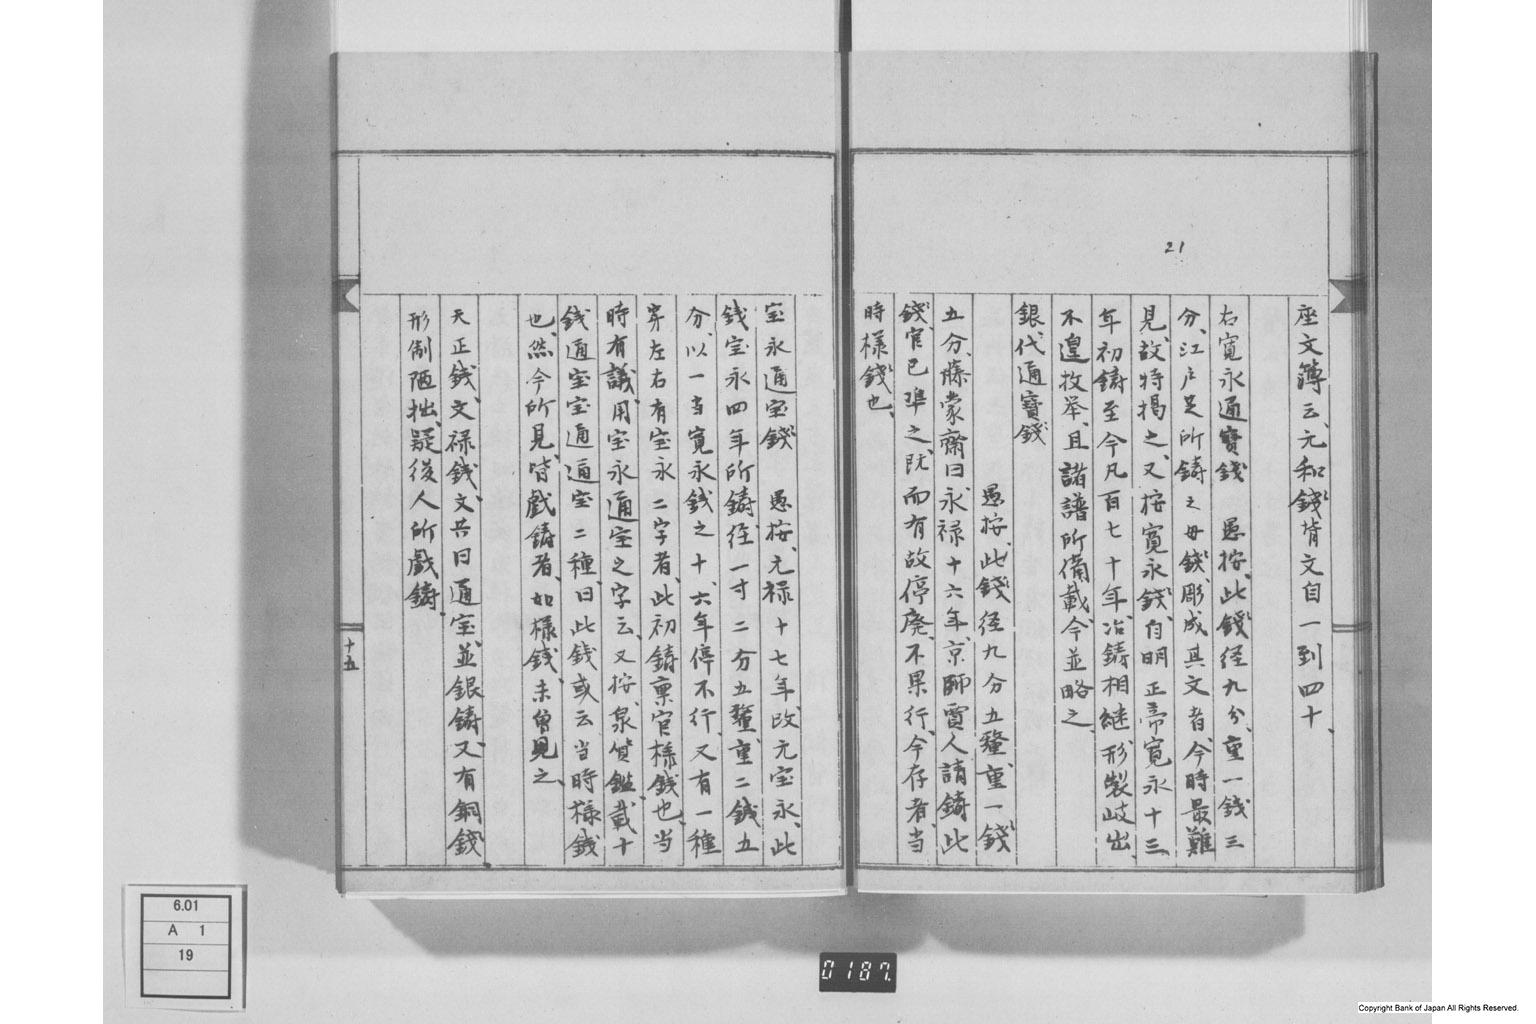 21
座文簿云、元和錢背文自一到四十、
右寛永通寳錢 愚按、此錢径九分、重一錢三
分、江戸足所鋳之毋錢、彫成其文者、今時最難
見、故特掲之、又按寛永錢、自明正帝寛永十三
年初鋳至今凡百七十年、冶鋳相継形製岐出、
不遑枚挙、且諸譜所備載、今並略之、
銀代通寳錢
愚按、此錢径九分五釐、重一錢
五分、藤蒙齋曰、永禄十六年、京師賈人請鋳此
錢、官已準之、既而有故停廃、不果行、今存者、当
時様錢也、
宝永通宝錢 愚按、元禄十七年改元宝永、此
銭宝永四年所鋳、径一寸二分五釐、重二銭五
分、以一当寛永銭之十、六年停不行、又有一種
穿左右有宝永二字者、此初鋳稟官様銭也、当
時有議、用宝永通宝之字云、又按、泉貨鑑載十
銭通宝宝通通宝二種、曰此銭或云当時様銭
也、然今所見、皆戯鋳者、如様銭、未曽見之、
天正銭、文禄銭、文共曰通宝、並銀鋳、又有銅錢、
形制陋拙、疑後人所戯鋳、
十五
6.01
A 1
19
0187.
Copyright Bank of Japan All Rights Reserved.